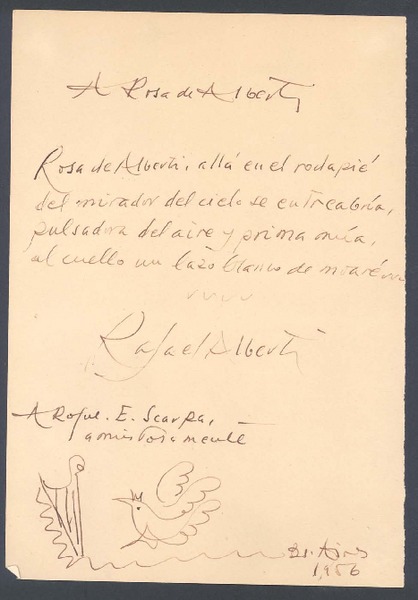 A Rosa de Alberti
Rosa de Alberti, allá en el rodapié
del mirador del cielo se entreabría,
pulsadora del aire y prima mía,
al cuello un lazo blanco de moaré
Rafael Alberti
A Roque. E. Scarpa,
amistosamente
Bs. Aires
1956